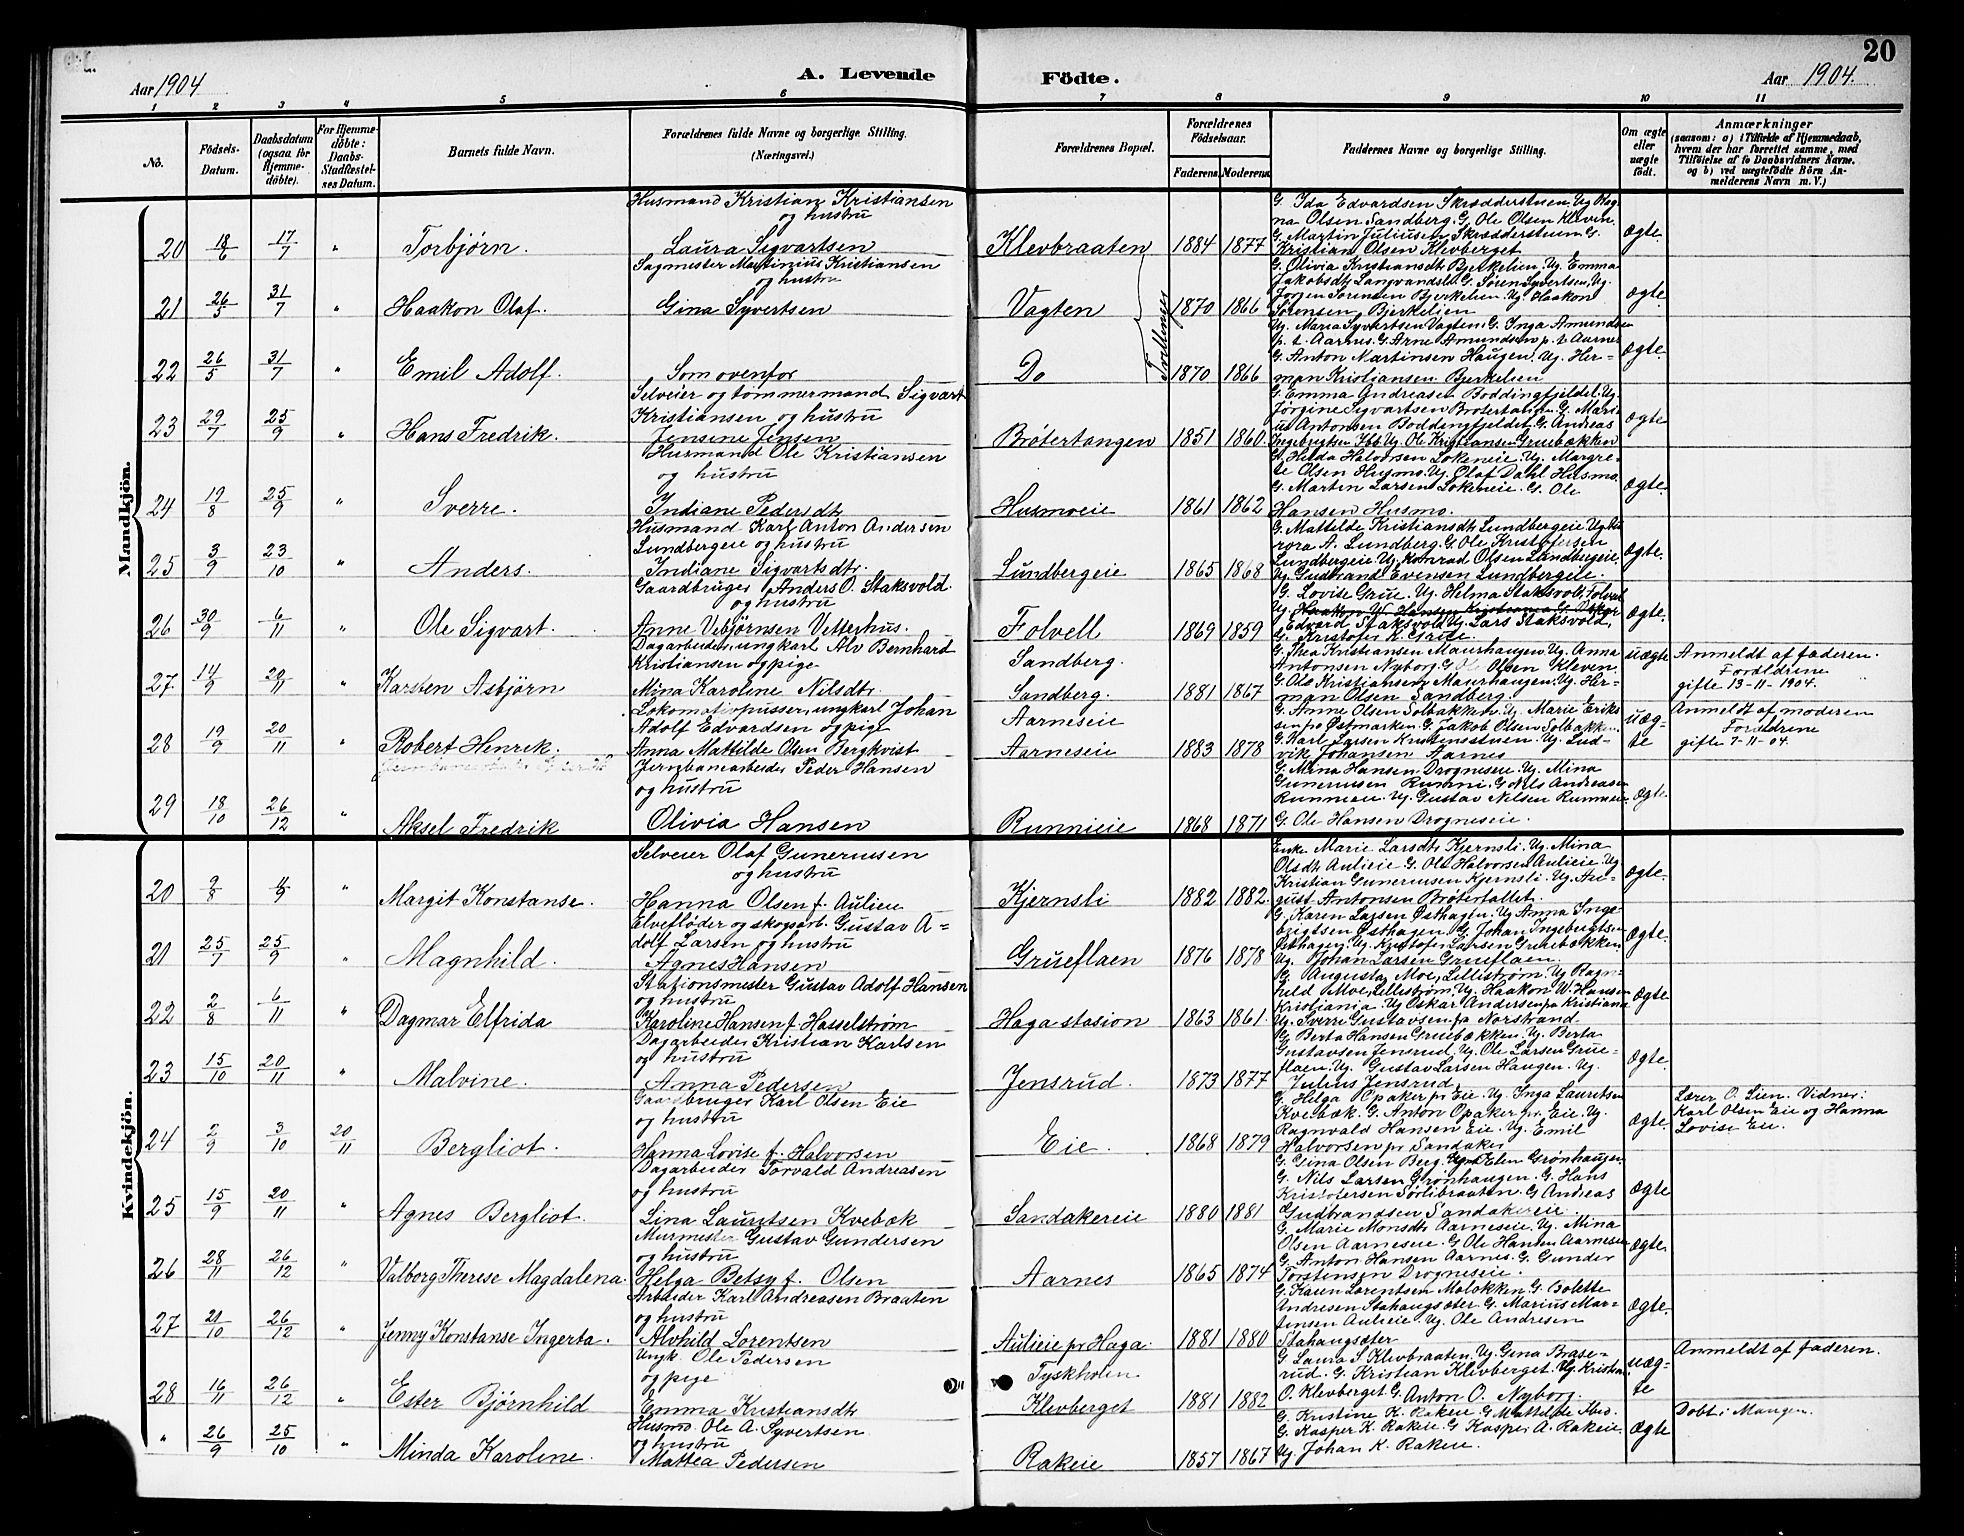 20
Aar 1904
A. Levende
Födte.
Aar 1904.
1 2 3 4 5 6 7 8 9 10 11
No.
Födsels-Datum.
Daabsdatum (ogsaa for Hjemme-döbte).
For Hjemme-döbte: Daabs-Stadfæstel-ses Datum.
Barnets fulde Navn.
Forældrenes fulde Navne og borgerlige Stilling.
(Næringsvei.)
Forældrenes Bopæl.
Forældrenes Födselsaar.
Faderens. Moderens.
Faddernes Navne og borgerlige Stilling.
Om ægte eller uægte födt.
Anmærkninger
(saasom: a) i Tilfælde af Hjemmedaab,
hvem der har forrettet samme, med
Tilföielse af to Daabsvidners Navne.
og b) ved uægtefödte Börn An-
melderens Navn m. V.)
Mandkjön.
20 18/6 17/7 " Torbjørn.
Husmand Kristian Kristiansen
og hustru
Laura Sigvartsen
Klevbraaten 1884 1877
G. Ida Edvardsen Skrædderstuen. Ug Mag-
na Olsen Sandberg. G. Ole Olsen Kleven.
G. Martin Juliusen Skrædderstuen G.
Kristian Olsen Klevberget
Ægte.
21 26/5 31/7 " Haakon Olaf.
Sagmester Martinius Kristiansen
og hustru
Gina Syvertsen
Vagten 1870 1866
Tvillinger
G. Olivia Kristiansdtr Bjerkelien. Ug. Emma
Jakobsdtr Langvandsld G. Søren Syvertsen, Ug.
Jørgen Sørensen Bjerkelien Ug. Haakon
Sørensen Bjerkelien
Ægte.
22 26/5 31/7 " Emil Adolf.
Som ovenfor
Do 1870 1866
Ug. Maria Syvertsen Vagten. G. Inga Amundsen
p. t. Aarnes. G. Arne Amundsen p. t. Aarnes
G. Anton Martinsen Haugen. Ug. Her-
man Kristiansen Bjerkelien
Ægte.
23 29/7 25/9 " Hans Fredrik.
Selveier og tømmermand Sigvart
Kristiansen og hustru
Jensine Jensen
Brøtertangen 1851 1860
G. Emma Andreasen Boddingfjeldet. Ug.
Jørgine Sigvartsen Brøtertangen G. Mari-
us Antonsen Boddingfjeldet. G. Andreas
Ingebrigtsen Ug. Ole Kristiansen Gruebækken
Ægte.
24 19/8 25/9 " Sverre.
Husmand Ole Kristiansen
og hustru
Indiane Pedersdtr
Husmoeie 1861 1862
G. Hilda Halvorsen Løkeneie. Ug. Margre-
te Olsen Husmo. Ug. Olaf Dahl Husmo.
G. Marten Larsen Løkeneie. G. Ole
Hansen Husmo.
Ægte.
25 3/9 23/10 " Anders.
Husmand Karl Anton Andersen
Lundbergeie og hustru
Indiane Sigvartsdtr.
Lundbergeie 1865 1868
G. Mattilde Kristiansdtr Lundbergeie Ug. Au-
rora A. Lundberg. G. Ole Kristofersen
Lundbergeie. Ug. Konrad Olsen Lundbergeie.
Ug. Gudbrand Evensen Lundbergeie.
Ægte.
26 30/9 6/11 " Ole Sigvart.
Gaardbruger Anders O. Staksvold.
og hustru
Anne Vebjørnsen Vetterhus.
Folvell 1869 1859
G. Lovise Grue. Ug. Helma Staksvold, Folvell
Ug. Haakon W. Hansen Kristiania G. Oskar
Edvard Staksvold Ug. Lars Staksvold,
G. Kristofer K. Grue.
Ægte.
27. 14/9 20/11 " Karsten Asbjørn
Dagarbeider, ungkarl Alv Bernhard
Kristiansen og pige
Mina Karoline Nilsdtr.
Sandberg.
Sandberg. 1881 1867
G. Thea Kristiansen Maurhaugen Ug. Anna
Antonsen Nyborg. G. Ole Olsen Kleven.
G. Ole Kristiansen Maurhaugen. Ug. Her-
man Olsen Sandberg.
uægte
Anmeldt af faderen.
Forældrene
gifte 13-11-1904.
28 19/9 20/11 " Robert Henrik.
Lokomotivpusser, ungkarl Johan
Adolf Edvardsen og pige
Anna Mattilde Olsen Bergkvist
Aarneseie
Aarneseie 1883 1878
G. Anne Olsen Solbakken. Ug. Marie Eriks
sen pr Østmarken. G. Jakob Olsen Solbakken.
G. Karl Larsen Kristensstuen. Ug. Lud-
vik Johansen Aarnes
uæg-
te
Anmeldt af moderen
Forældrene
gifte 7-11-04.
29 18/10 26/12 " Aksel Fredrik
Jernbanearbeider Peder Hansen
og hustru
Olivia Hansen
Runnieie 1868 1871
G. Mina Hansen Drogneseie. Ug. Mina
Guneriusen Runni. G. Nils Andreasen
Runnieie. Ug. Gustav Nilsen Runnieie.
G. Ole Hansen Drogneseie.
Ægte.
Kvindekjön.
20 9/8 4/9 " Margit Konstanse.
Selveier Olaf Guneriusen
og hustru
Hanna Olsen f. Aulien
Kjernsli 1882 1882.
Enke Marie Larsdtr Kjernsli. Ug. Mina
Olsdtr Aulieie G. Ole Halvorsen Aulieie. Ug
Kristian Guneriusen Kjernsli. Ug. Au-
gust Antonsen Brøterfallet.
Ægte.
21 25/7 25/9 " Magnhild.
Elvefløder og skogsarb. Gustav A-
dolf Larsen og hustru
Agnes Hansen
Grueflaen 1876 1878
G. Karen Larsen Østhagen. Ug Anna Inge-
brigtsen Østhagen. G. Johan Ingebrigtsen
Østhagen. Ug. Kristofer Larsen Gruebækken
Ug. Johan Larsen Grueflaen.
Ægte.
22 2/8 6/11 " Dagmar Elfrida
Stationsmester Gustav Adolf Hansen
og hustru
Karoline Hansen f. Hasselstrøm
Haga stasion 1863 1861
G. Augusta Moe, Lillistrøm. Ug Ragn-
hild Moe, Lillestrøm. Ug. Haakon W. Hansen
Kristiania. Ug Oskar Andersen fra Kristiania
Ug. Sverre Gustavsen fra Norstrand.
Ægte
23 15/10 20/11 " Malvine.
Dagarbeider Kristian Karlsen
og hustru
Anna Pedersen
Jensrud. 1873 1877
G. Berta Hansen Gruebækken. Ug. Berta
Gustavsen Jensrud. Ug. Ole Larsen Grue-
flaen. Ug. Gustav Larsen Haugen. Ug.
Julius Jensrud.
Ægte.
24 2/9 3/10 20/11 Bergliot.
Gaardbruger Karl Olsen Eie
og hustru
Hanna Lovise f. Halvorsen
Eie. 1868 1879
G. Helga Opaker pr Eie. Ug. Inga Lauritsen
Kvebæk. G. Anton Opaker pr. Eie. Ug.
Ragnvald Hansen Eie Ug. Emil
Halvorsen pr Sandaker
Ægte.
Lærer O. Lien. Vidner:
Karl Olsen Eie og Hanna
Lovise Eie.
25 15/9 20/11 " Agnes Bergliot.
Dagarbeider Torvald Andreasen
og hustru
Lina Lauritsen Kvebæk
Sandakereie 1880 1881
G. Gina Olsen Berg. Ug. Elen Grønhaugen.
G. Nils Larsen Grønhaugen. G. Hans
Kristofersen Sørlibraaten. G Andreas
Gudbrandsen Sandakereie.
Ægte
26 28/11 26/12 " Valborg Therese Magdalena.
Murmester Gustav Gundersen
og hustru
Helga Betsy f. Olsen
Aarnes 1865 1874
G. Marie Monsdtr Aarneseie. Ug. Mina
Olsen Aarneseie G. Ole Hansen Aarneseie
G. Anton Hansen Aarnes. G. Gunder
Torstensen Drogneseie.
Ægte.
27 21/10 26/12 " Jenny Konstanse Ingerta.
Arbeider Karl Andreasen Braaten
og hustru
Alvhild Lorentsen
Aulieie pr Haga. 1881 1880
G. Karen Lorentsen Moløkken G. Bolette
Andresen Stahaugsæter G. Marius Mar-
tinsen Aulieie. Ug. Ole Andresen
Stahaugsæter
Ægte.
28 16/11 26/12 " Ester Bjørnhild
Ungk. Ole Pedersen
og pige
Emma Kristiansdtr
Tyskholen
Klevberget 1881 1882
G. Laura S. Klevbraaten. Ug. Gina Brase-
rud. G. Kristian Klevberget. Ug. Kristian
O. Klevberget G. Anton O. Nyborg.
uæg-
te
Anmeldt af faderen.
" 26/9 25/10 " Minda Karoline.
Husmd. Ole A. Syvertsen
og hustru
Mattea Pedersen
Rakeie 1857 1867
G. Kristine K. Rakeie G. Mattilde Ibid.
G. Kasper K. Rakeie. G Kasper A. Rakeie.
Ug. Johan K. Rakeie.
Ægte
Døbt i Mangen.